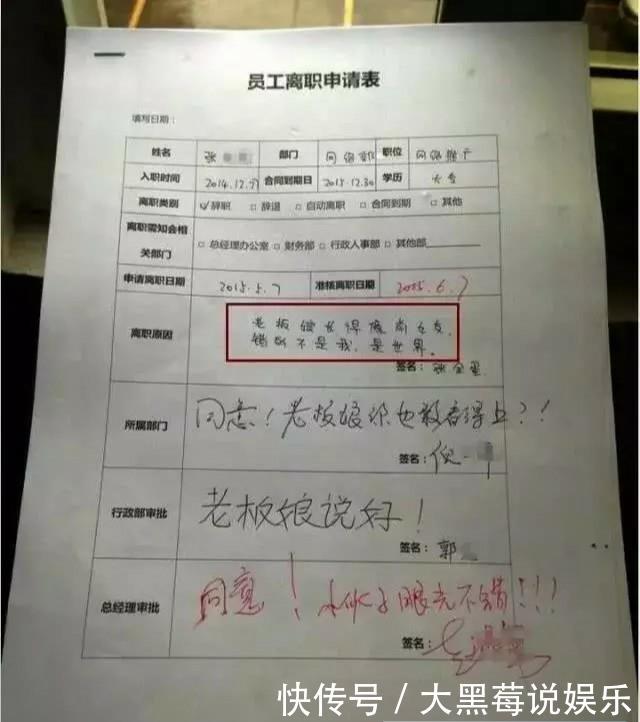 员工离职申请表
填写日期：
姓名 张 部门 网络部 职位 网络推广
入职时间 2014.12.29 合同到期日 2015.12.30 学历 大专
离职类别 ☑辞职 □辞退 □自动离职 □合同到期 □其他
离职需知会相关部门 □总经理办公室 □财务部 □行政人事部 □其他部
申请离职日期 2015.5.7 准核离职日期 2015.6.7
离职原因
老板娘长得像前女友，
错的不是我，是世界。
签名：张
所属部门 同意！老板娘你也敢看得上？！
签名：倪
行政部审批 老板娘说好！
签名：郭
总经理审批 同意！小伙子眼光不错！！！
签名：
快传号／大黑莓说娱乐